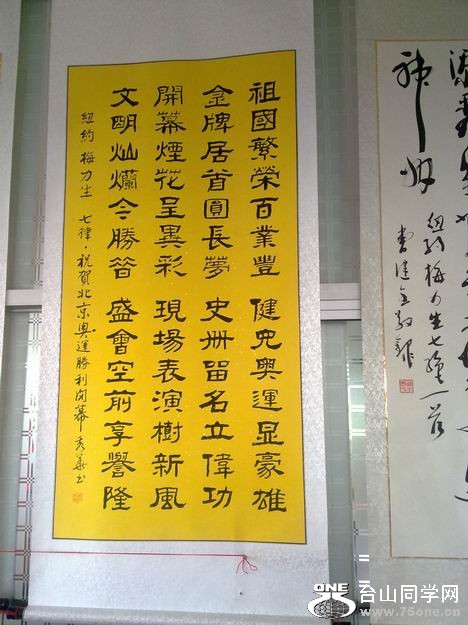 紐約梅力生七绝一首
祖國繁榮百業豐 健兒奧運显豪雄
金牌居首圓長夢 史册留名立偉功
開幕煙花呈異彩 現場表演樹新風
文明灿爛今勝昔 盛會空前享譽隆
紐約 梅力生 七律·祝賀北京奧運勝利闭幕 秀華书
ONE 台山同学网
www.75one.cn